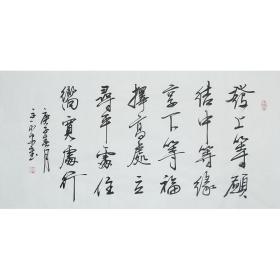 發上等願
結中等緣
享下等福
擇高處立
尋平處住
嚮寬處行
庚子春月